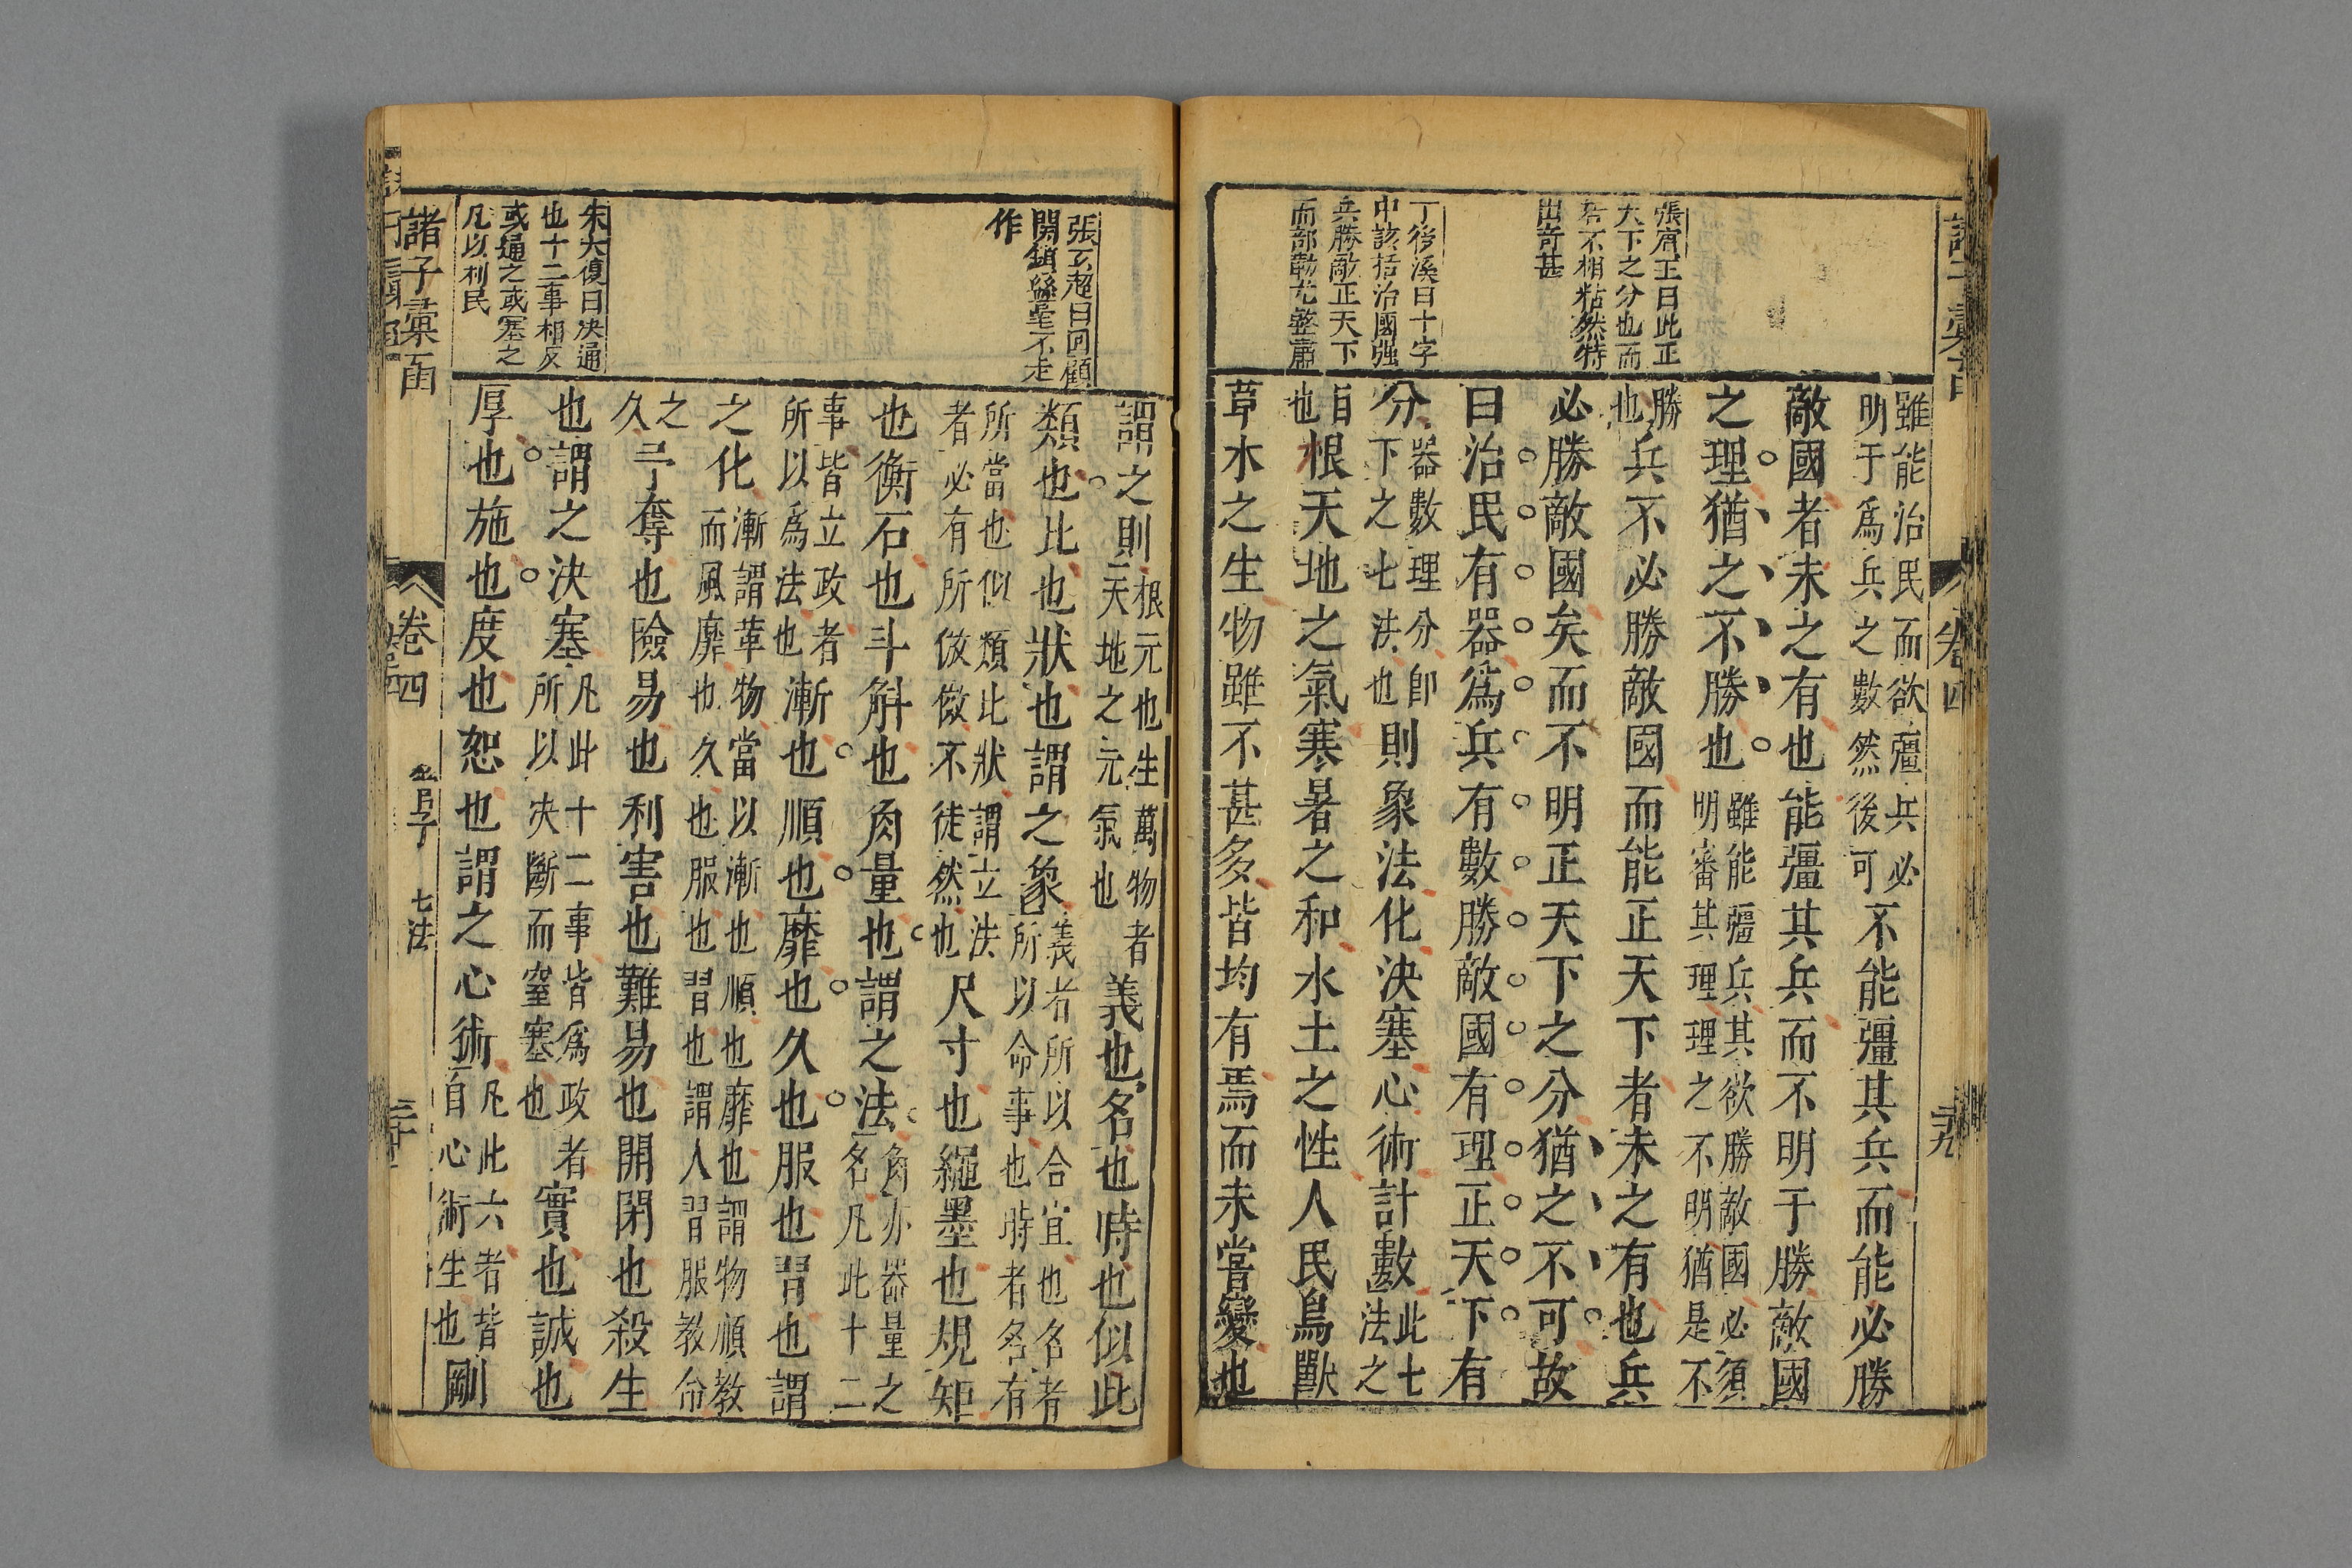 張賓王曰此正
天下之分也而
若不相粘然特
出奇甚
丁後溪曰十字
中該括治國強
兵勝敵正天下
而部勒尤整肅
雖能治民而欲彊兵必
明于為兵之數然後可
不能彊其兵而能必勝
敵國者未之有也能彊其兵而不明于勝敵國
之理猶之不勝也
雖能彊兵其欲勝敵國必須
明審其理理之不明猶是不
勝
也
兵不必勝敵國而能正天下者未之有也兵
必勝敵國矣而不明正天下之分猶之不可故
曰治民有器為兵有數勝敵國有理正天下有
分
器數理分即
下之七法也
則象法化決塞心術計數
此七
法之
目
也
根天地之氣寒暑之和水土之性人民鳥獸
草木之生物雖不甚多皆均有焉而未嘗變也
張玄超曰回顧
開鎖盤毫不走
作
朱大復曰決通
也十二事相反
或通之或塞之
凡以利民
謂之則
根元也生萬物者
天地之元氣也
義也名也時也似此
類也比也狀也謂之象
義者所以合宜也名者
所以命事也時者名有
所當也似類比狀謂立法
者必有所倣傚不徒然也
尺寸也繩墨也規矩
也衡石也斗斛也角量也謂之法
角亦器量之
名凡此十二
事皆立政者
所以為法也
漸也順也靡也久也服也習也謂
之化
漸謂革物當以漸也順也靡也謂物順教
而風靡也久也服也習也謂人習服教命
之
久
予奪也險易也利害也難易也開閉也殺生
也謂之決塞
凡此十二事皆為政者
所以決斷而窒塞也
實也誠也
厚也施也度也恕也謂之心術
凡此六者皆
自心術生也
剛
諸子彙函
卷四
管子
七法
三十